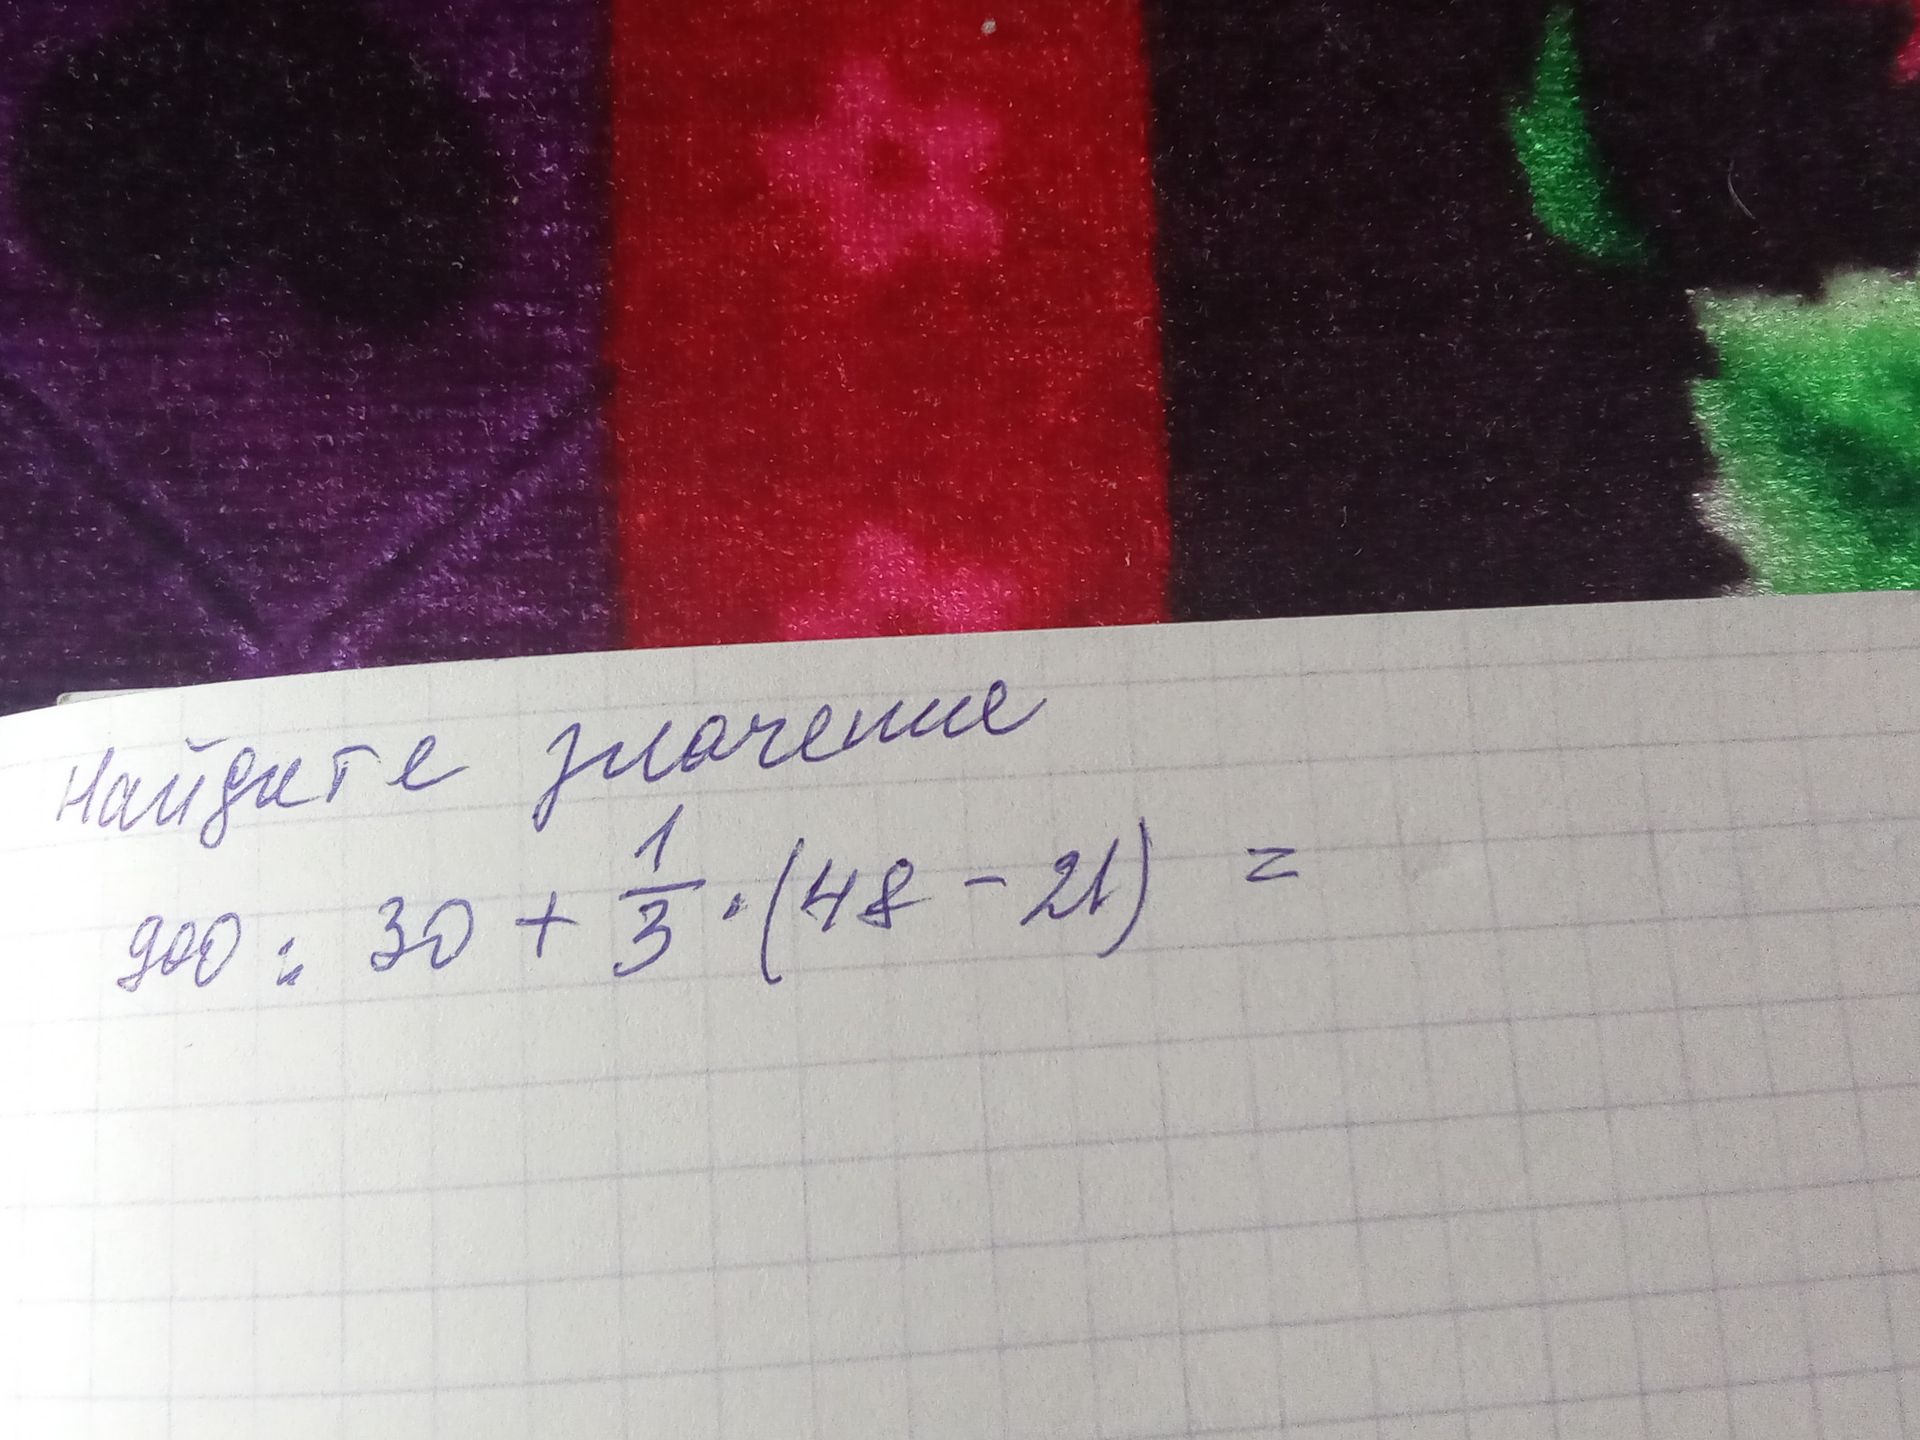 Найдите значение
900 : 30 + 1/3 · (48 - 21) =